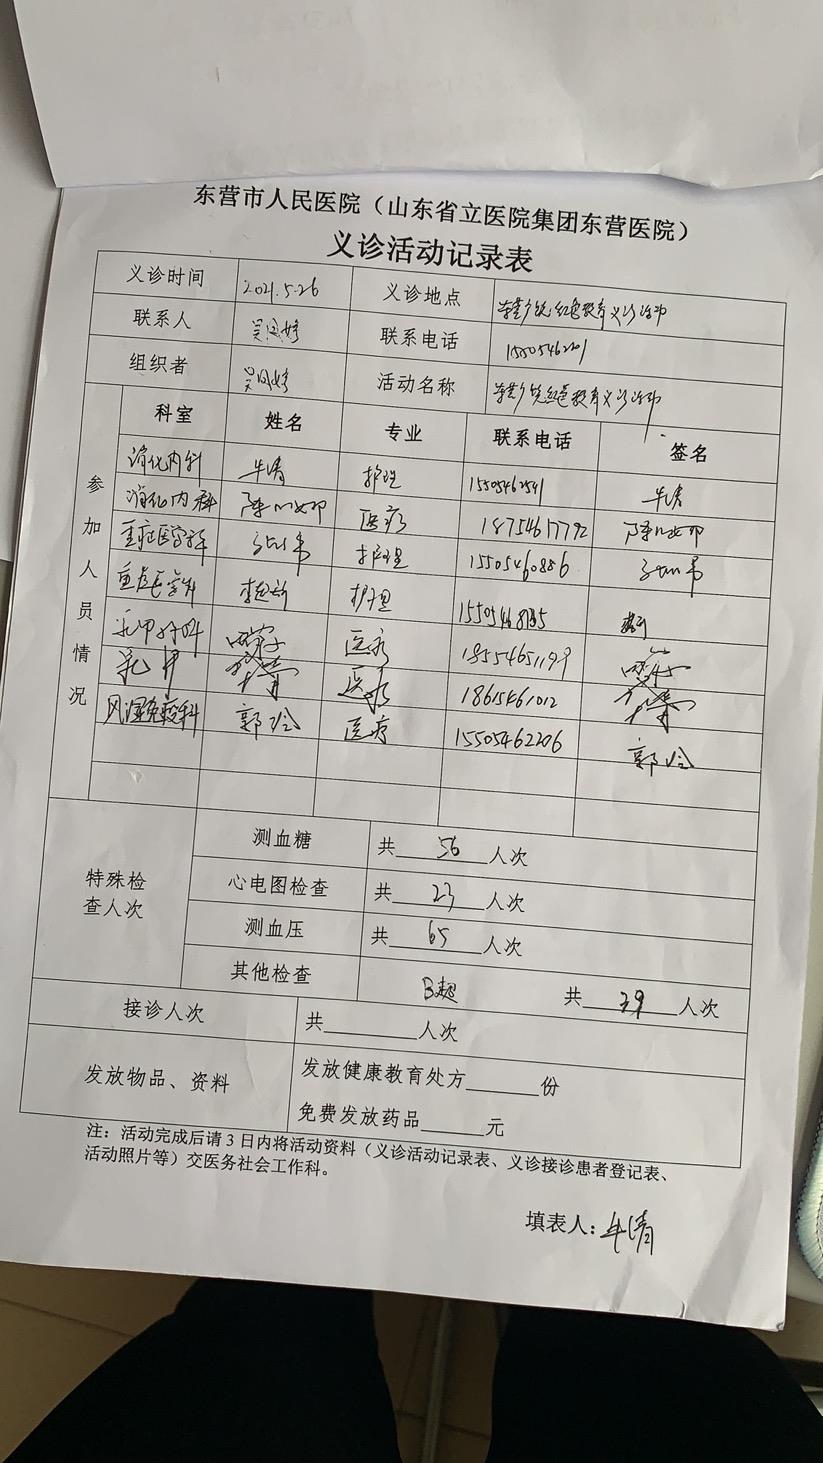 东营市人民医院（山东省立医院集团东营医院）
义诊活动记录表
义诊时间 2021.5.26 义诊地点 红色教育义诊活动
联系人 联系电话 15505462201
组织者 活动名称 红色教育义诊活动
参加人员情况
科室 姓名 专业 联系电话 签名
消化内科 牟清 护理 15505462541 牟清
消化内科 医疗 18754617792
重症医学科 护理 15505460886
重症医学科 护理
乳甲外科 医疗 18554651199
乳甲 医疗 18615461012
风湿免疫科 郭玲 医疗 15505462206 郭玲
特殊检查人次
测血糖 共 56 人次
心电图检查 共 23 人次
测血压 共 65 人次
其他检查 B超 共 39 人次
接诊人次 共 人次
发放物品、资料
发放健康教育处方 份
免费发放药品 元
注：活动完成后请3日内将活动资料（义诊活动记录表、义诊接诊患者登记表、
活动照片等）交医务社会工作科。
填表人：牟清